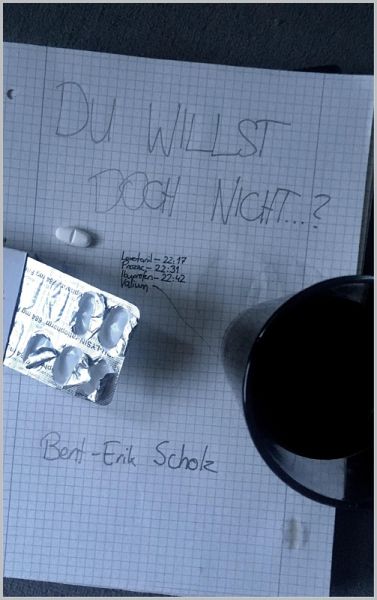 DU WILLST
DOCH NICHT...?
Lorafanil - 22:17
Prozac - 22:31
Ibuprofen - 22:42
Valium
684 mg
Bent-Erik Scholz